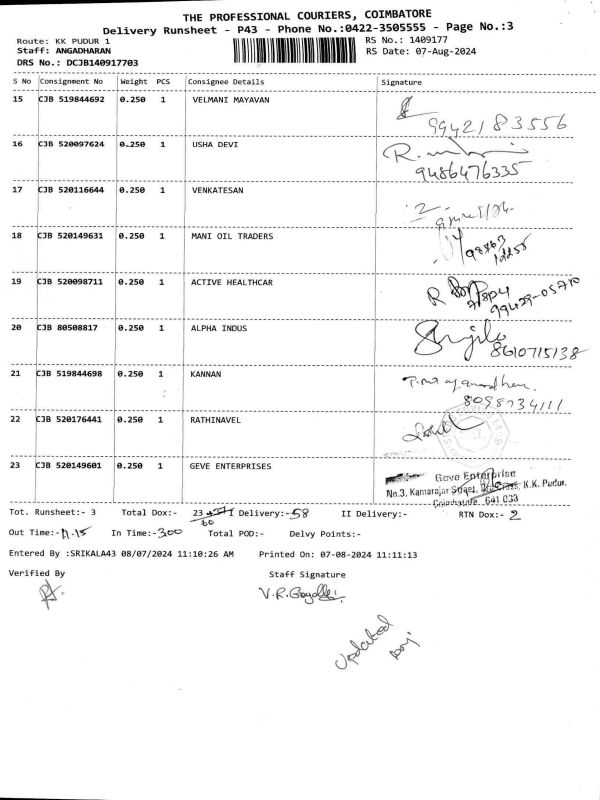 THE PROFESSIONAL COURIERS, COIMBATORE
Delivery Runsheet - P43 - Phone No.:0422-3505555 - Page No.:3
Route: KK PUDUR 1 RS No.: 1409177
Staff: ANGADHARAN RS Date: 07-Aug-2024
DRS No.: DCJB140917703
S No Consignment No Weight PCS Consignee Details Signature
15 CJB 519844692 0.250 1 VELMANI MAYAVAN
9942183556
16 CJB 520097624 0.250 1 USHA DEVI
9486476335
17 CJB 520116644 0.250 1 VENKATESAN
18 CJB 520149631 0.250 1 MANI OIL TRADERS
19 CJB 520098711 0.250 1 ACTIVE HEALTHCAR
99429-05710
20 CJB 80508817 0.250 1 ALPHA INDUS
8610715138
21 CJB 519844698 0.250 1 KANNAN
8098734111
22 CJB 520176441 0.250 1 RATHINAVEL
23 CJB 520149601 0.250 1 GEVE ENTERPRISES
Geve Enterprise
No.3, Kamarajar Street, Cross, K.K. Pudur,
Coimbatore, 641 033
Tot. Runsheet:- 3 Total Dox:- 23 Delivery:-58 II Delivery:- RTN Dox:- 2
60
Out Time:-11.15 In Time:-3.00 Total POD:- Delvy Points:-
Entered By :SRIKALA43 08/07/2024 11:10:26 AM Printed On: 07-08-2024 11:11:13
Verified By Staff Signature
Updated